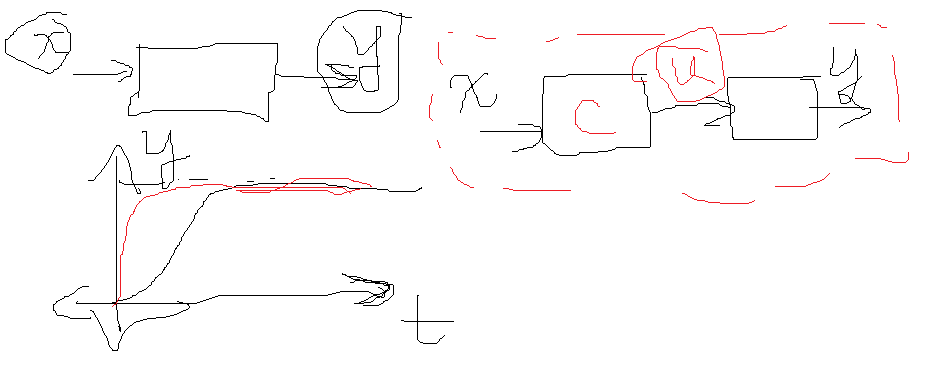 x y
x C u y
y
t